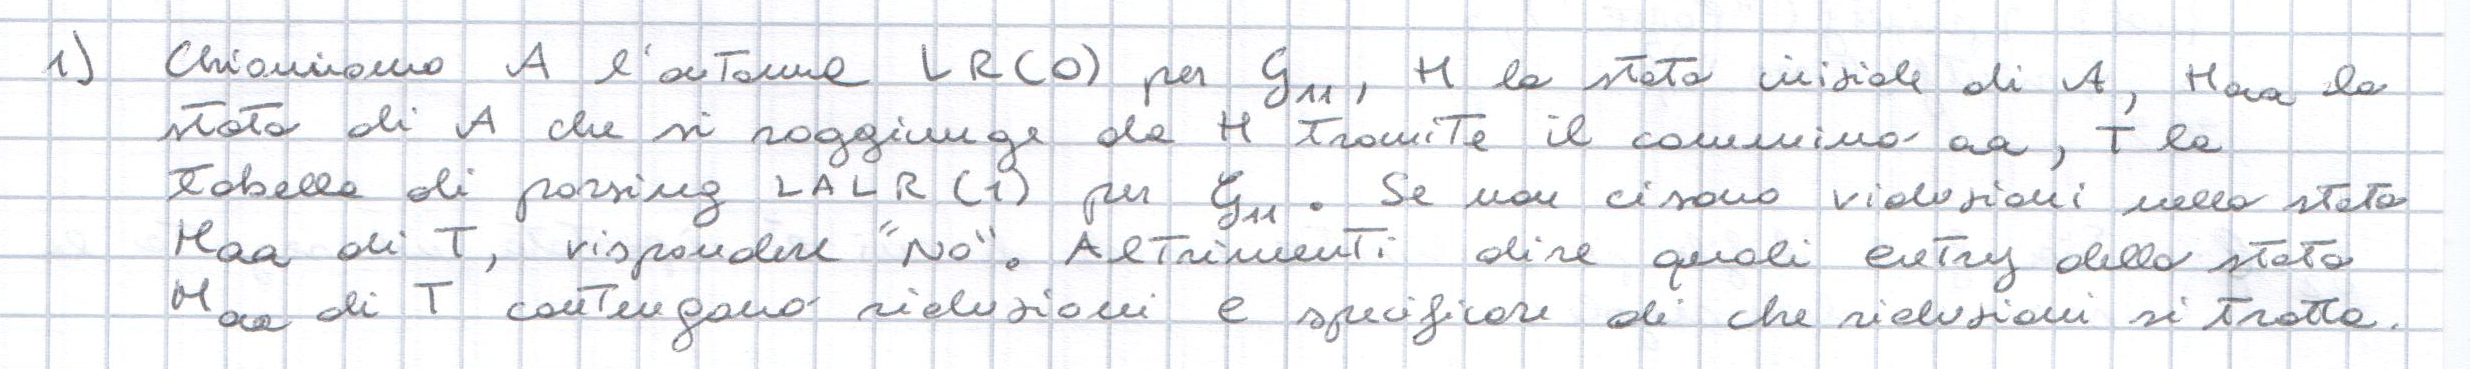 1) Chiamiamo A l'automa LR(0) per G11, H lo stato iniziale di A, Haa lo
stato di A che si raggiunge da H tramite il cammino aa, T la
tabella di parsing LALR(1) per G11. Se non ci sono riduzioni nello stato
Haa di T, rispondere "No". Altrimenti dire quali entry dello stato
Haa di T contengono riduzioni e specificare di che riduzioni si tratta.